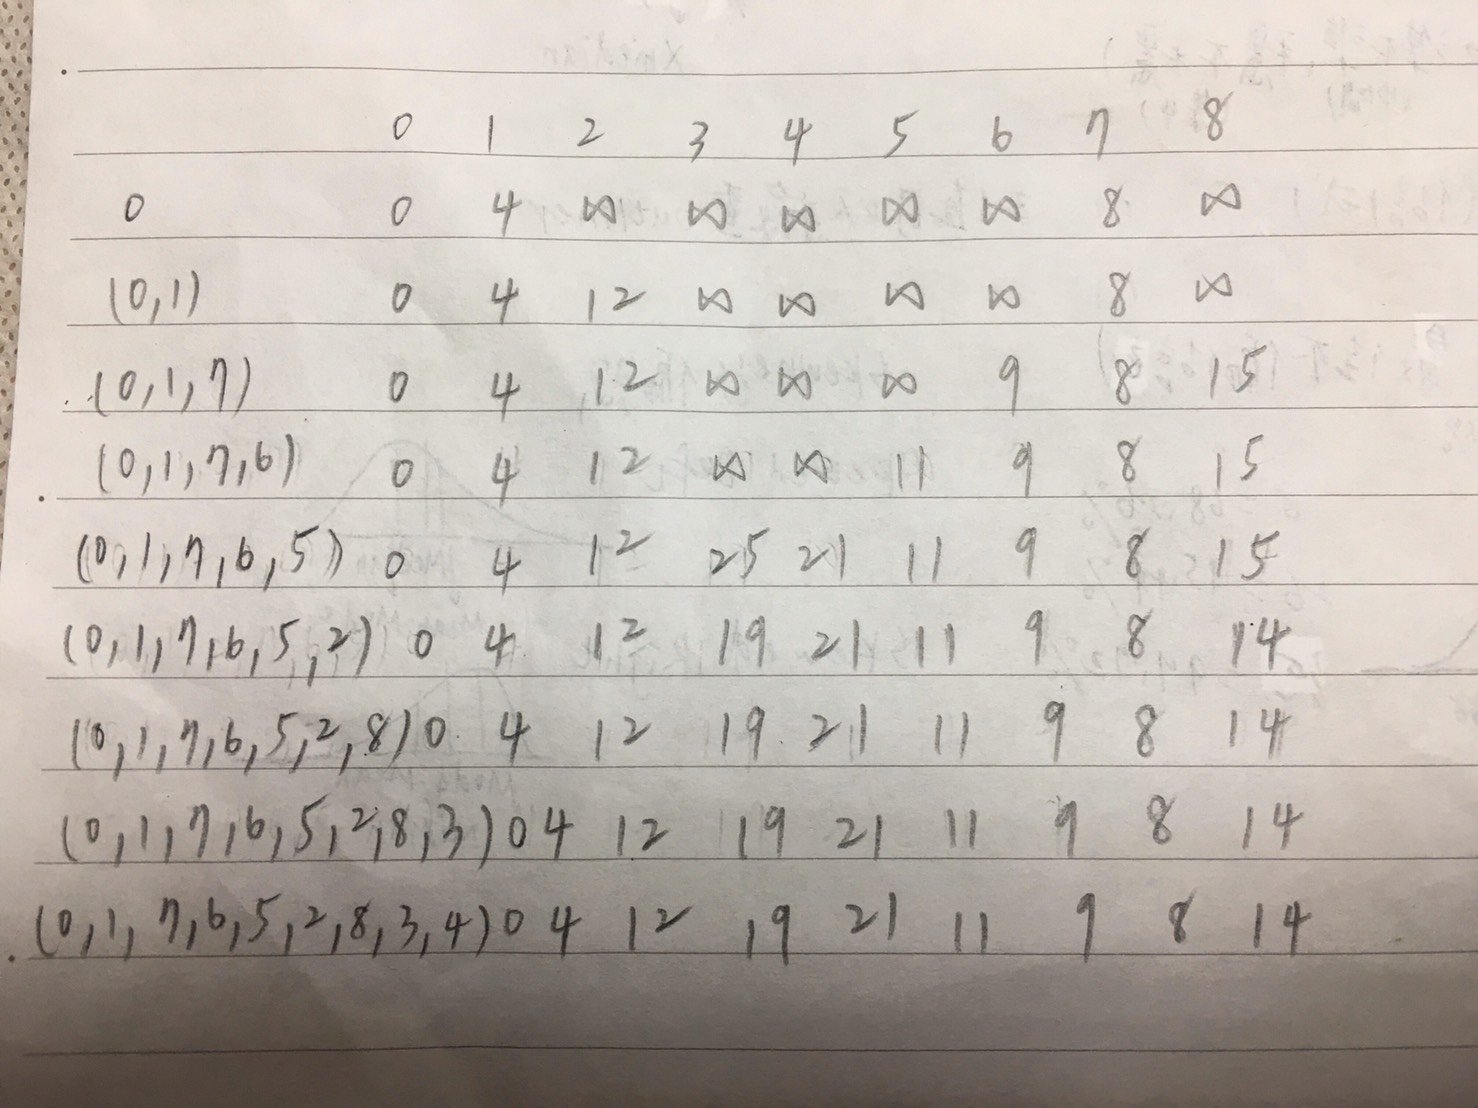 0 1 2 3 4 5 6 7 8
0 0 4 ∞ ∞ ∞ ∞ ∞ 8 ∞
(0,1) 0 4 12 ∞ ∞ ∞ ∞ 8 ∞
(0,1,7) 0 4 12 ∞ ∞ ∞ 9 8 15
(0,1,7,6) 0 4 12 ∞ ∞ 11 9 8 15
(0,1,7,6,5) 0 4 12 25 21 11 9 8 15
(0,1,7,6,5,2) 0 4 12 19 21 11 9 8 14
(0,1,7,6,5,2,8) 0 4 12 19 21 11 9 8 14
(0,1,7,6,5,2,8,3) 0 4 12 19 21 11 9 8 14
(0,1,7,6,5,2,8,3,4) 0 4 12 19 21 11 9 8 14